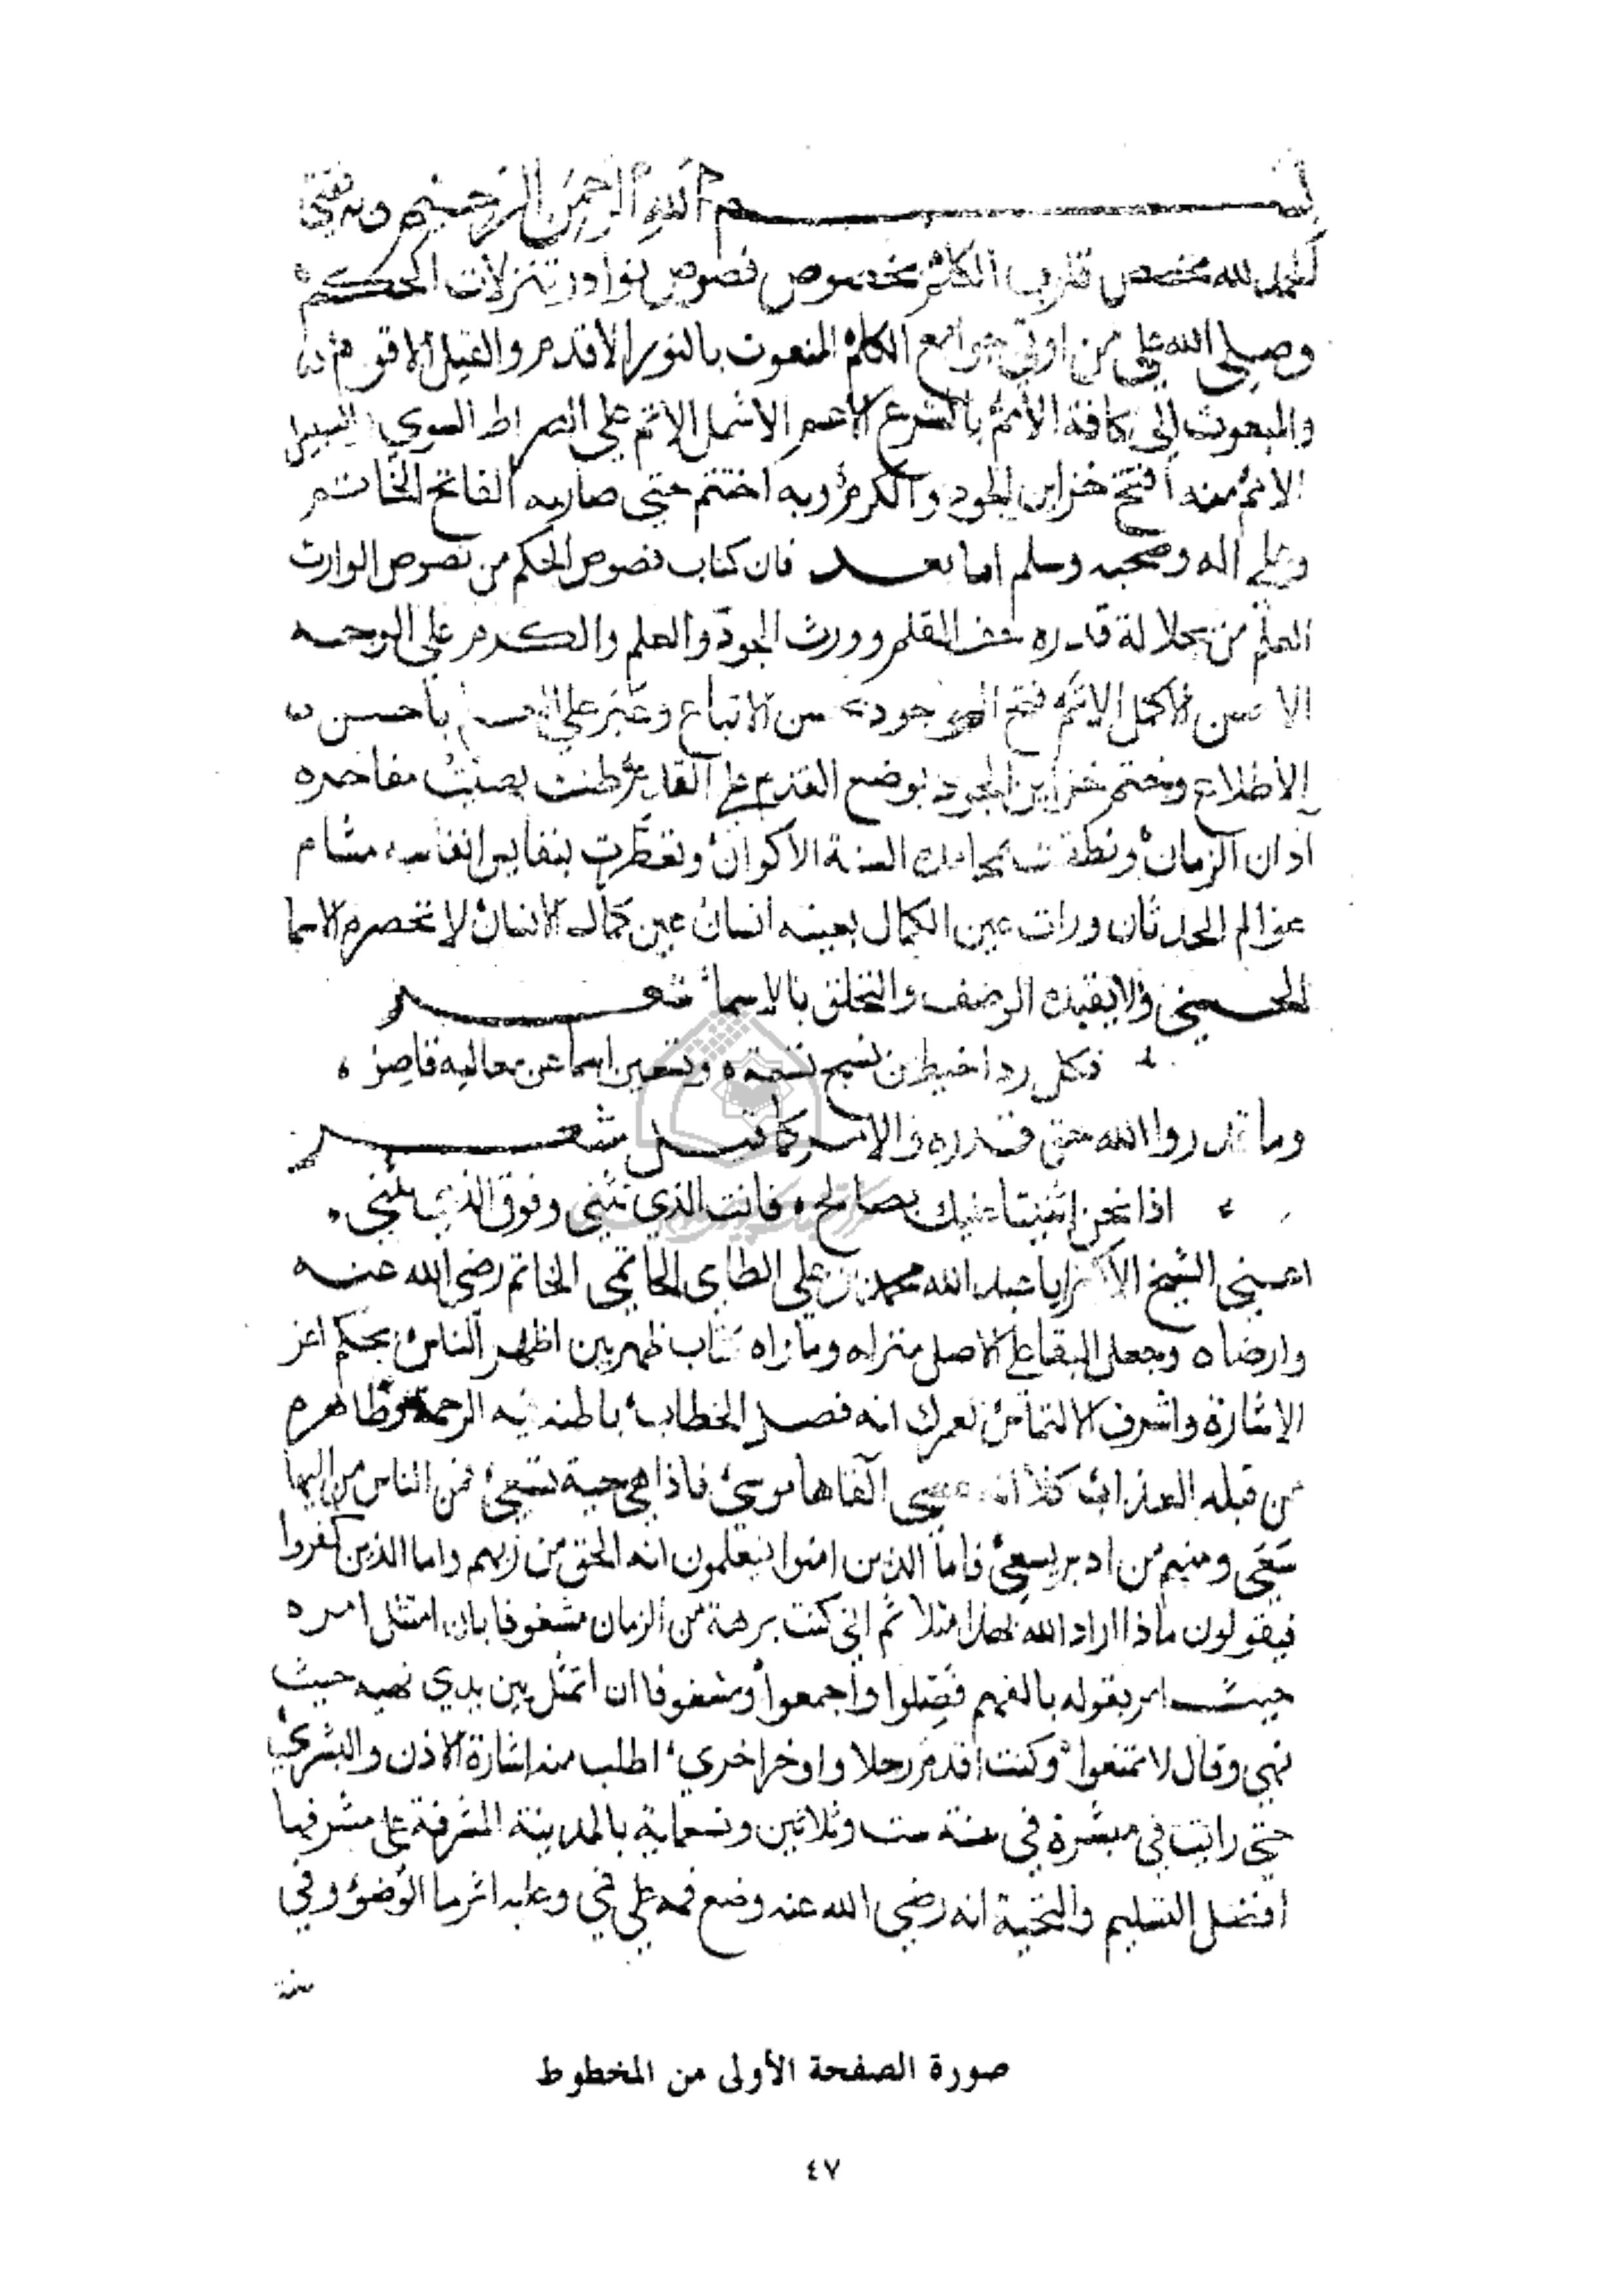 بسم الله الرحمن الرحيم وبه ثقتي
الحمد لله مخصص قلوب الكلم بخصوص فصوص نوادر تنزلات الحكم
وصلى الله على من اوتي جوامع الكلم المنعوت بالنور الاقدم والقيل الاقوم
والمبعوث الى كافة الأمم بالشرع الاعم الاشمل الاتم على الصراط السوي السبيل
الامم منه افتتح خزاين الجود والكرم وبه اختتم حتى صار به الفاتح الخاتم
وعلى اله وصحبه وسلم اما بعد فان كتاب فصوص الحكم من نصوص الوارث
العلم من جلالة قدره القلم وورث الجود والعلم والكرم على الوجه
الاحسن الاكمل الاتم فتح الوجود من الاتباع وعثر على باحسن
الاطلاع وختم خزاين الجود بوضع القدم على القدم طنت بصيت مفاخره
آذان الزمان ونطقت بمحامده السنة الاكوان وتعطرت بنفايس انفاسه مشام
عوالم الحدثان ورات عين الكمال بعينه انسان عين كمال الانسان لا تحصره الاسما
الحسنى ولا يقيده الوصف والتخلق بالاسما شعر
فكل ردا خيط من نسج نسمة وتعيين اسما عن معاليه قاصر
وما قدروا الله حق قدره والامر كما قيل شعر
اذا نحن اثنينا عليك بصالح فانت الذي نثني وفوق الذي نثني
اعني الشيخ الاكبر ابا عبد الله محمد بن علي الطاي الحاتمي الخاتم رضي الله عنه
وارضاه وجعل البقا على الاصل منزله وماواه كتاب ظهر بين اظهر الناس بحكم اعز
الاشارة واشرف الالتماس لعمرك انه فصل الخطاب باطنه فيه الرحمة وظاهره
من قبله العذاب كلا انه عصى القاها موسى فاذا هي حية تسعى فمن الناس من اليها
سعى ومنهم من ادبر يسعى فاما الذين امنوا فيعلمون انه الحق من ربهم واما الذين كفروا
فيقولون ماذا اراد الله بهذا مثلا ثم اني كنت برهة من الزمان مشغوفا بان امتثل امره
حيث امر بقوله بالفهم فصلوا واجمعوا ومشغوفا ان اتمثل بين يدي نهيه حيث
نهى وقال لا تمنعوا وكنت اقدم رجلا واوخر اخرى اطلب منه اشارة الاذن والبشرى
حتى رايت في مبشرة في سنة ست وثلاثين وتسعماية بالمدينة المشرفة على مشرفها
افضل التسليم والتحية انه رضي الله عنه وضع فمه على فمي وعليه اثر ما الوضوء وفي
منه
صورة الصفحة الأولى من المخطوط
٤٧